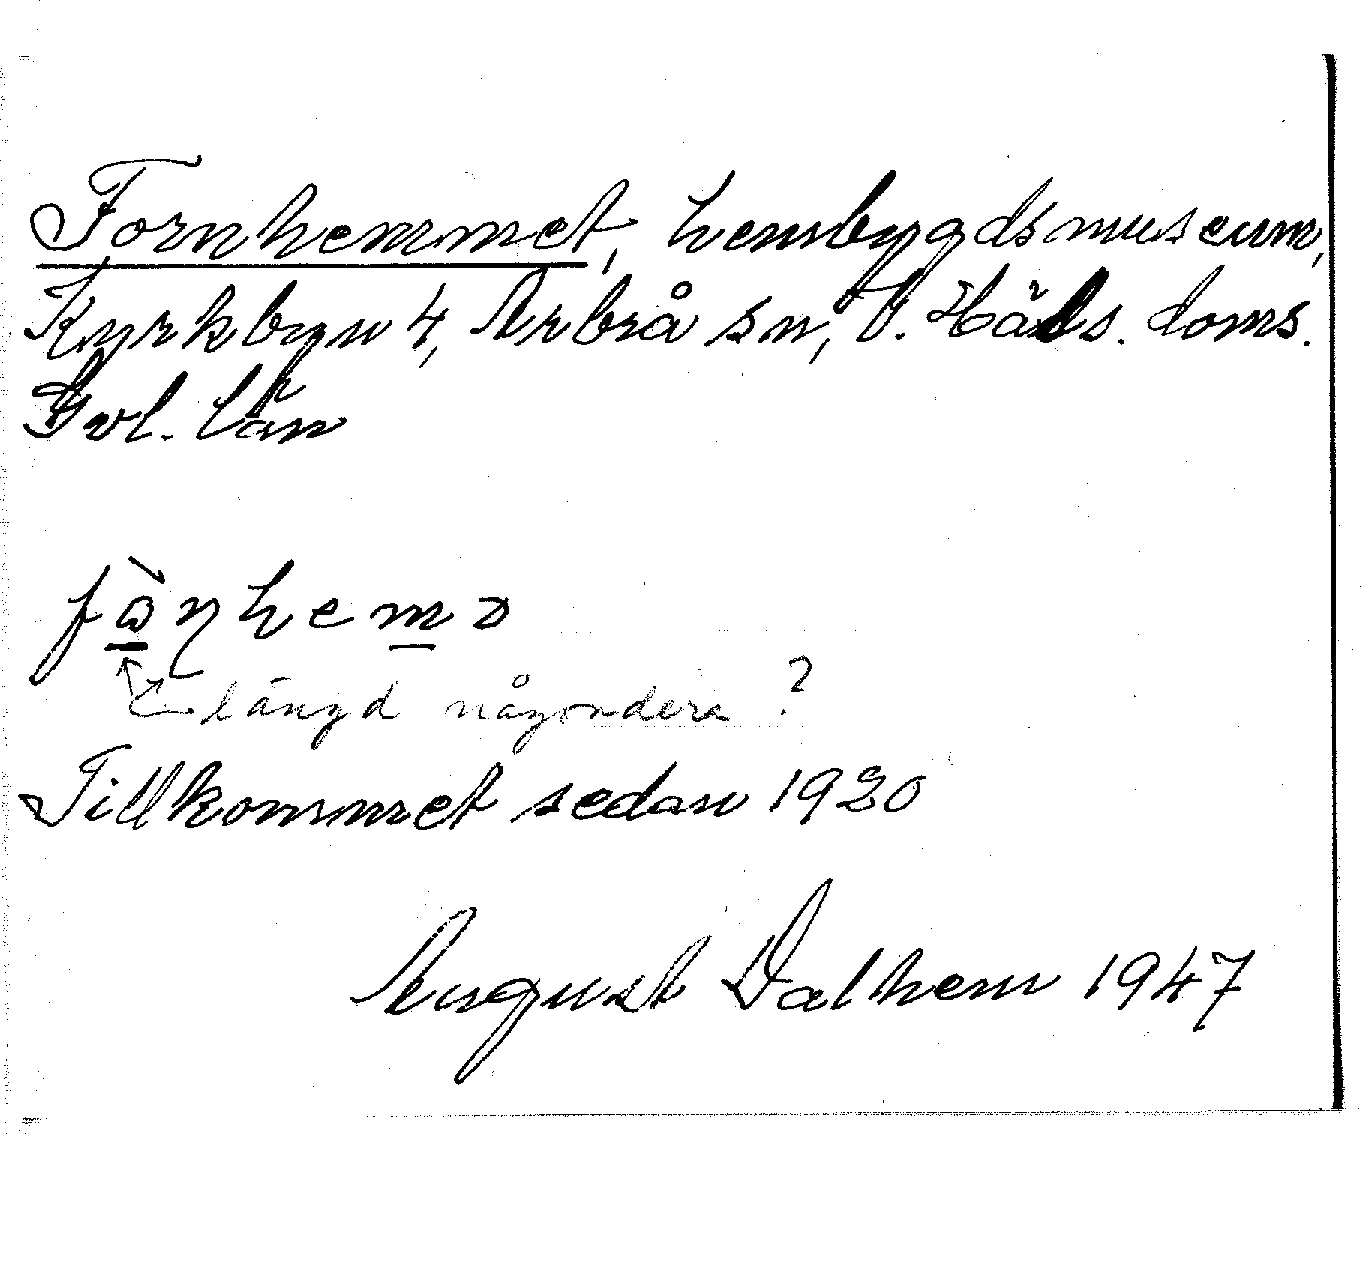 Fornhemmet, hembygdsmuseum,
Kyrkbyn 4, Arbrå sn, V. Häls. doms.
Gvl. län
fɷ̀ɳhemə
längd någondera ?
Tillkommet sedan 1920
August Dalhem 1947